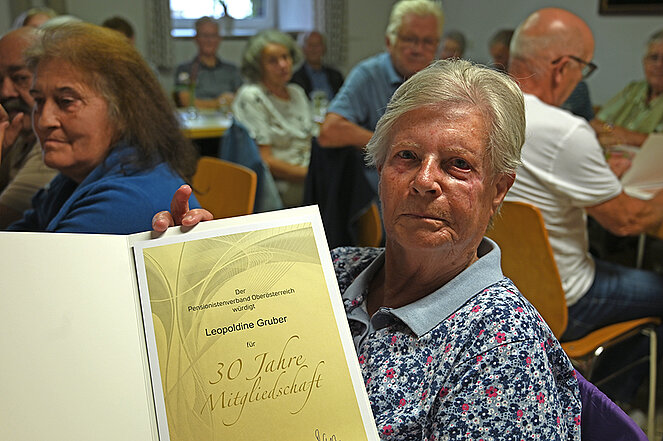 Der
Pensionistenverband Oberösterreich
würdigt
Leopoldine Gruber
für
30 Jahre
Mitgliedschaft